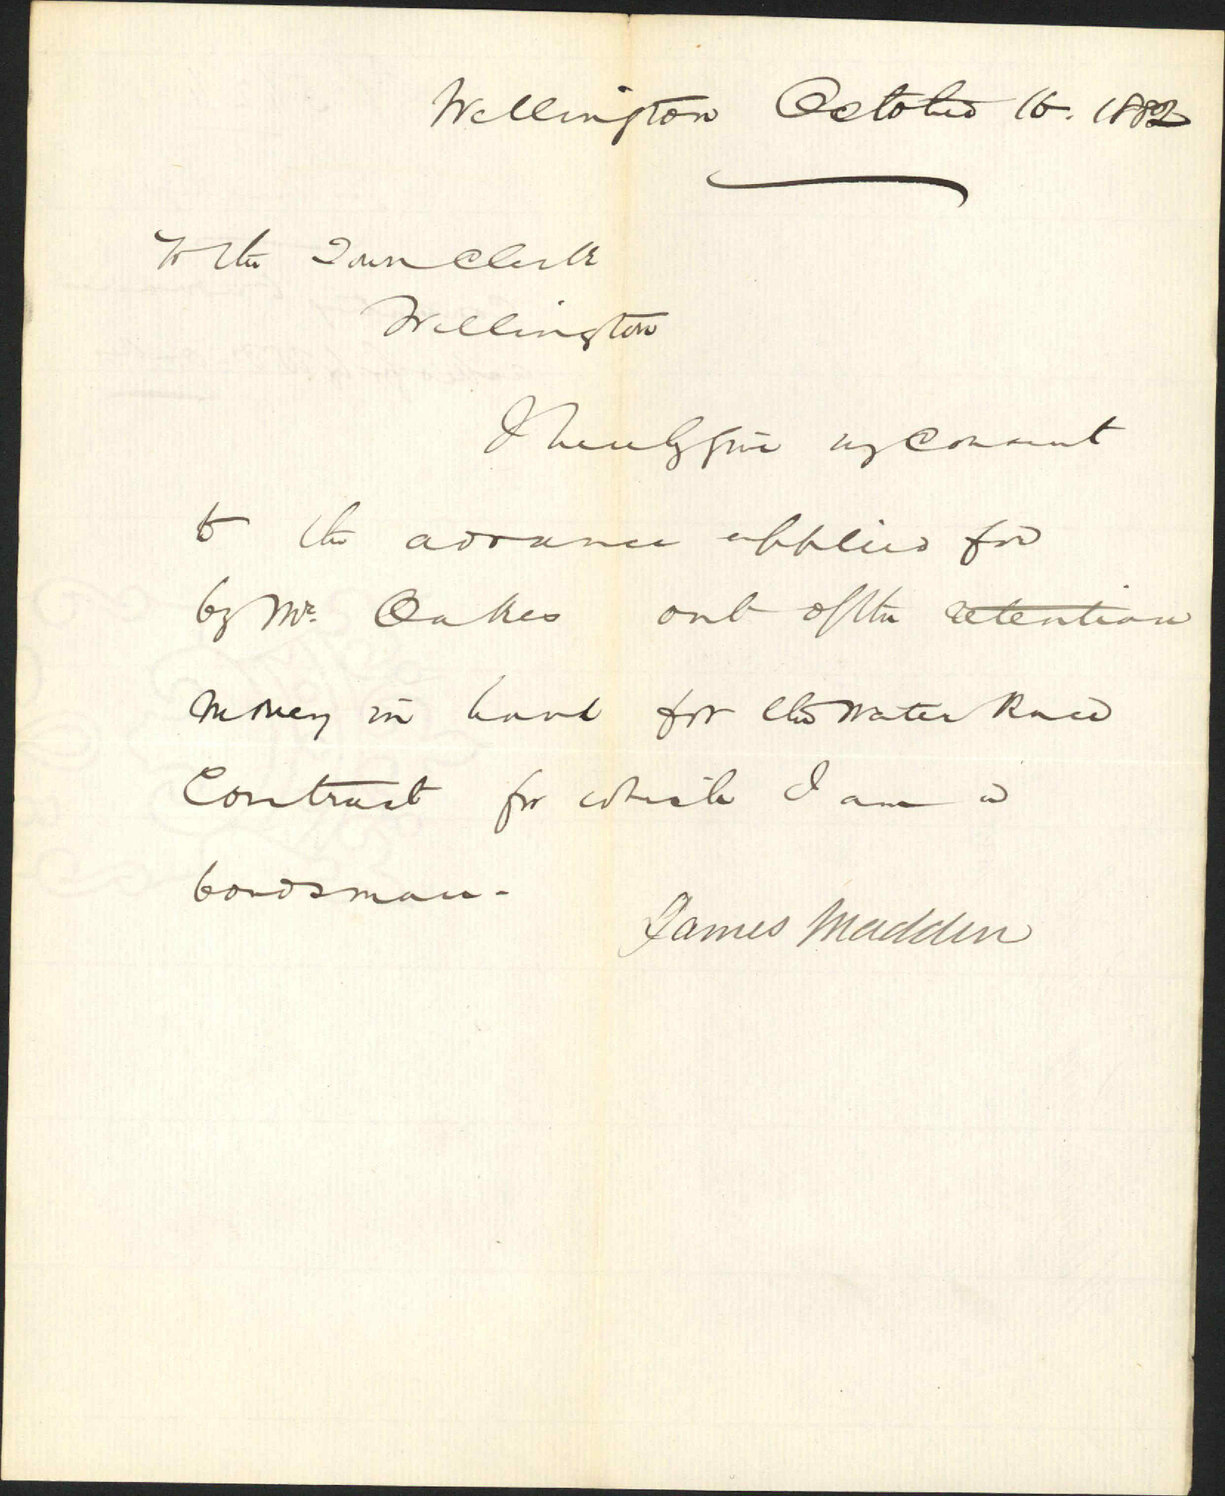 Wellington October 16. 1882
To the Town Clerk
Wellington
I hereby give my consent
to the advance applied for
by Mr. Oakes out of the retention
money in hand for the Water Race
Contract for which I am a
bondsman -
James Madden